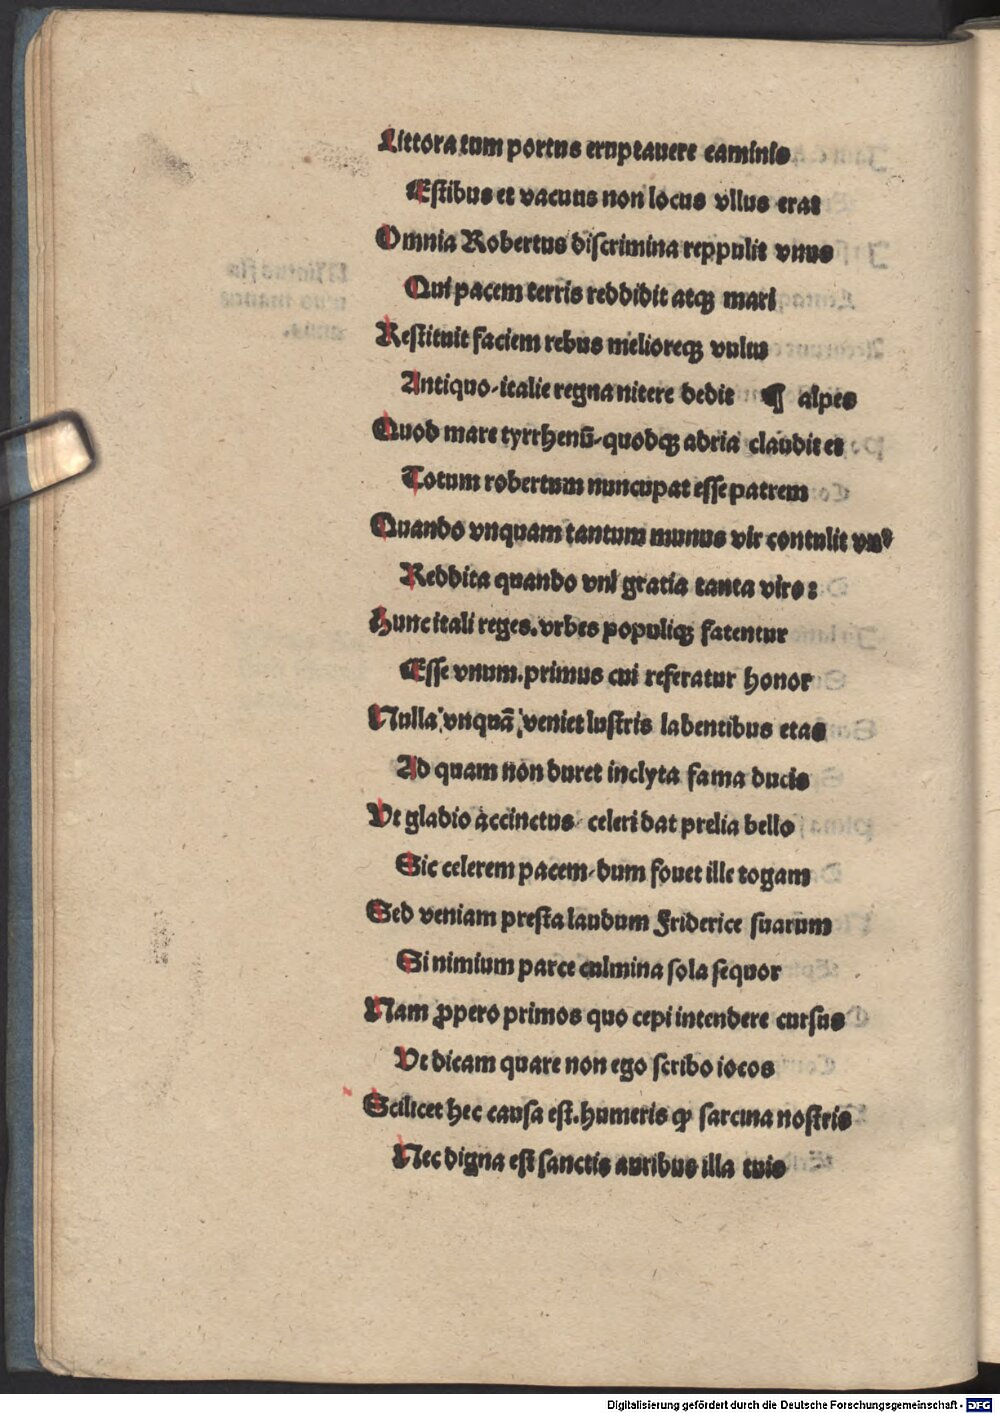 Littora tum portus eruptauere caminis
Estibus et vacuus non locus vllus erat
Omnia Robertus discrimina reppulit vnus
Qui pacem terris reddidit atqꝫ mari
Restituit faciem rebus melioreqꝫ vultu
Antiquo-italie regna nitere dedit ¶ alpes
Quod mare tyrrhenū-quodqꝫ adria claudit et
Totum robertum nuncupat esse patrem
Quando vnquam tantum munus vir contulit vnꝰ
Reddita quando vni gratia tanta viro:
Hunc itali reges. vrbes populiqꝫ fatentur
Esse vnum. primus cui referatur honor
Nulla vnquā veniet lustris labentibus etas
Ad quam non duret inclyta fama ducis
Vt gladio accinctus celeri dat prelia bello
Sic celerem pacem-dum fouet ille togam
Sed veniam presta laudum Friderice suarum
Si nimium parce culmina sola sequor
Nam ꝓpero primos quo cepi intendere cursus
Vt dicam quare non ego scribo iocos
Scilicet hec causa est. humeris ꝙ sarcina nostris
Nec digna est sanctis auribus illa tuis
Digitalisierung gefördert durch die Deutsche Forschungsgemeinschaft - DFG